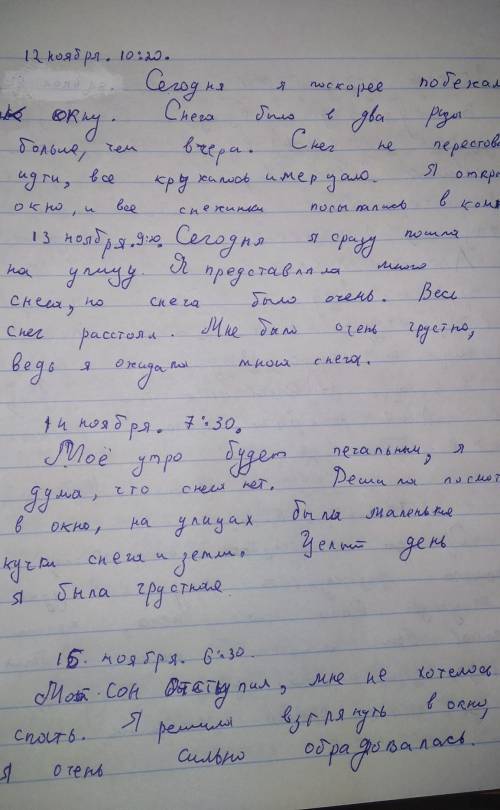 12 ноября. 10:20.
Сегодня я поскорее побежал
окну. Снега было в два разы
больше, чем вчера. Снег не перестова
идти, все кружилось и мерцало. Я откр
окно, и все снежинки посыпались в комн
13 ноября. Сегодня я сразу пошла
на улицу. Я представляла много
снега, но снега было очень. Весь
снег расстоял. Мне было очень грустно,
ведь я ожидала много снега.
14 ноября. 7:30.
Моё утро будет печальным, я
дума, что снега нет. Решила посмот
в окно, на улицах была маленькие
кучки снега и земли. Целый день
я была грустная
15. ноября. 6:30.
Мой сон отступил, мне не хотелось
спать. Я решила взглянуть в окно,
я очень сильно обрадовалась.